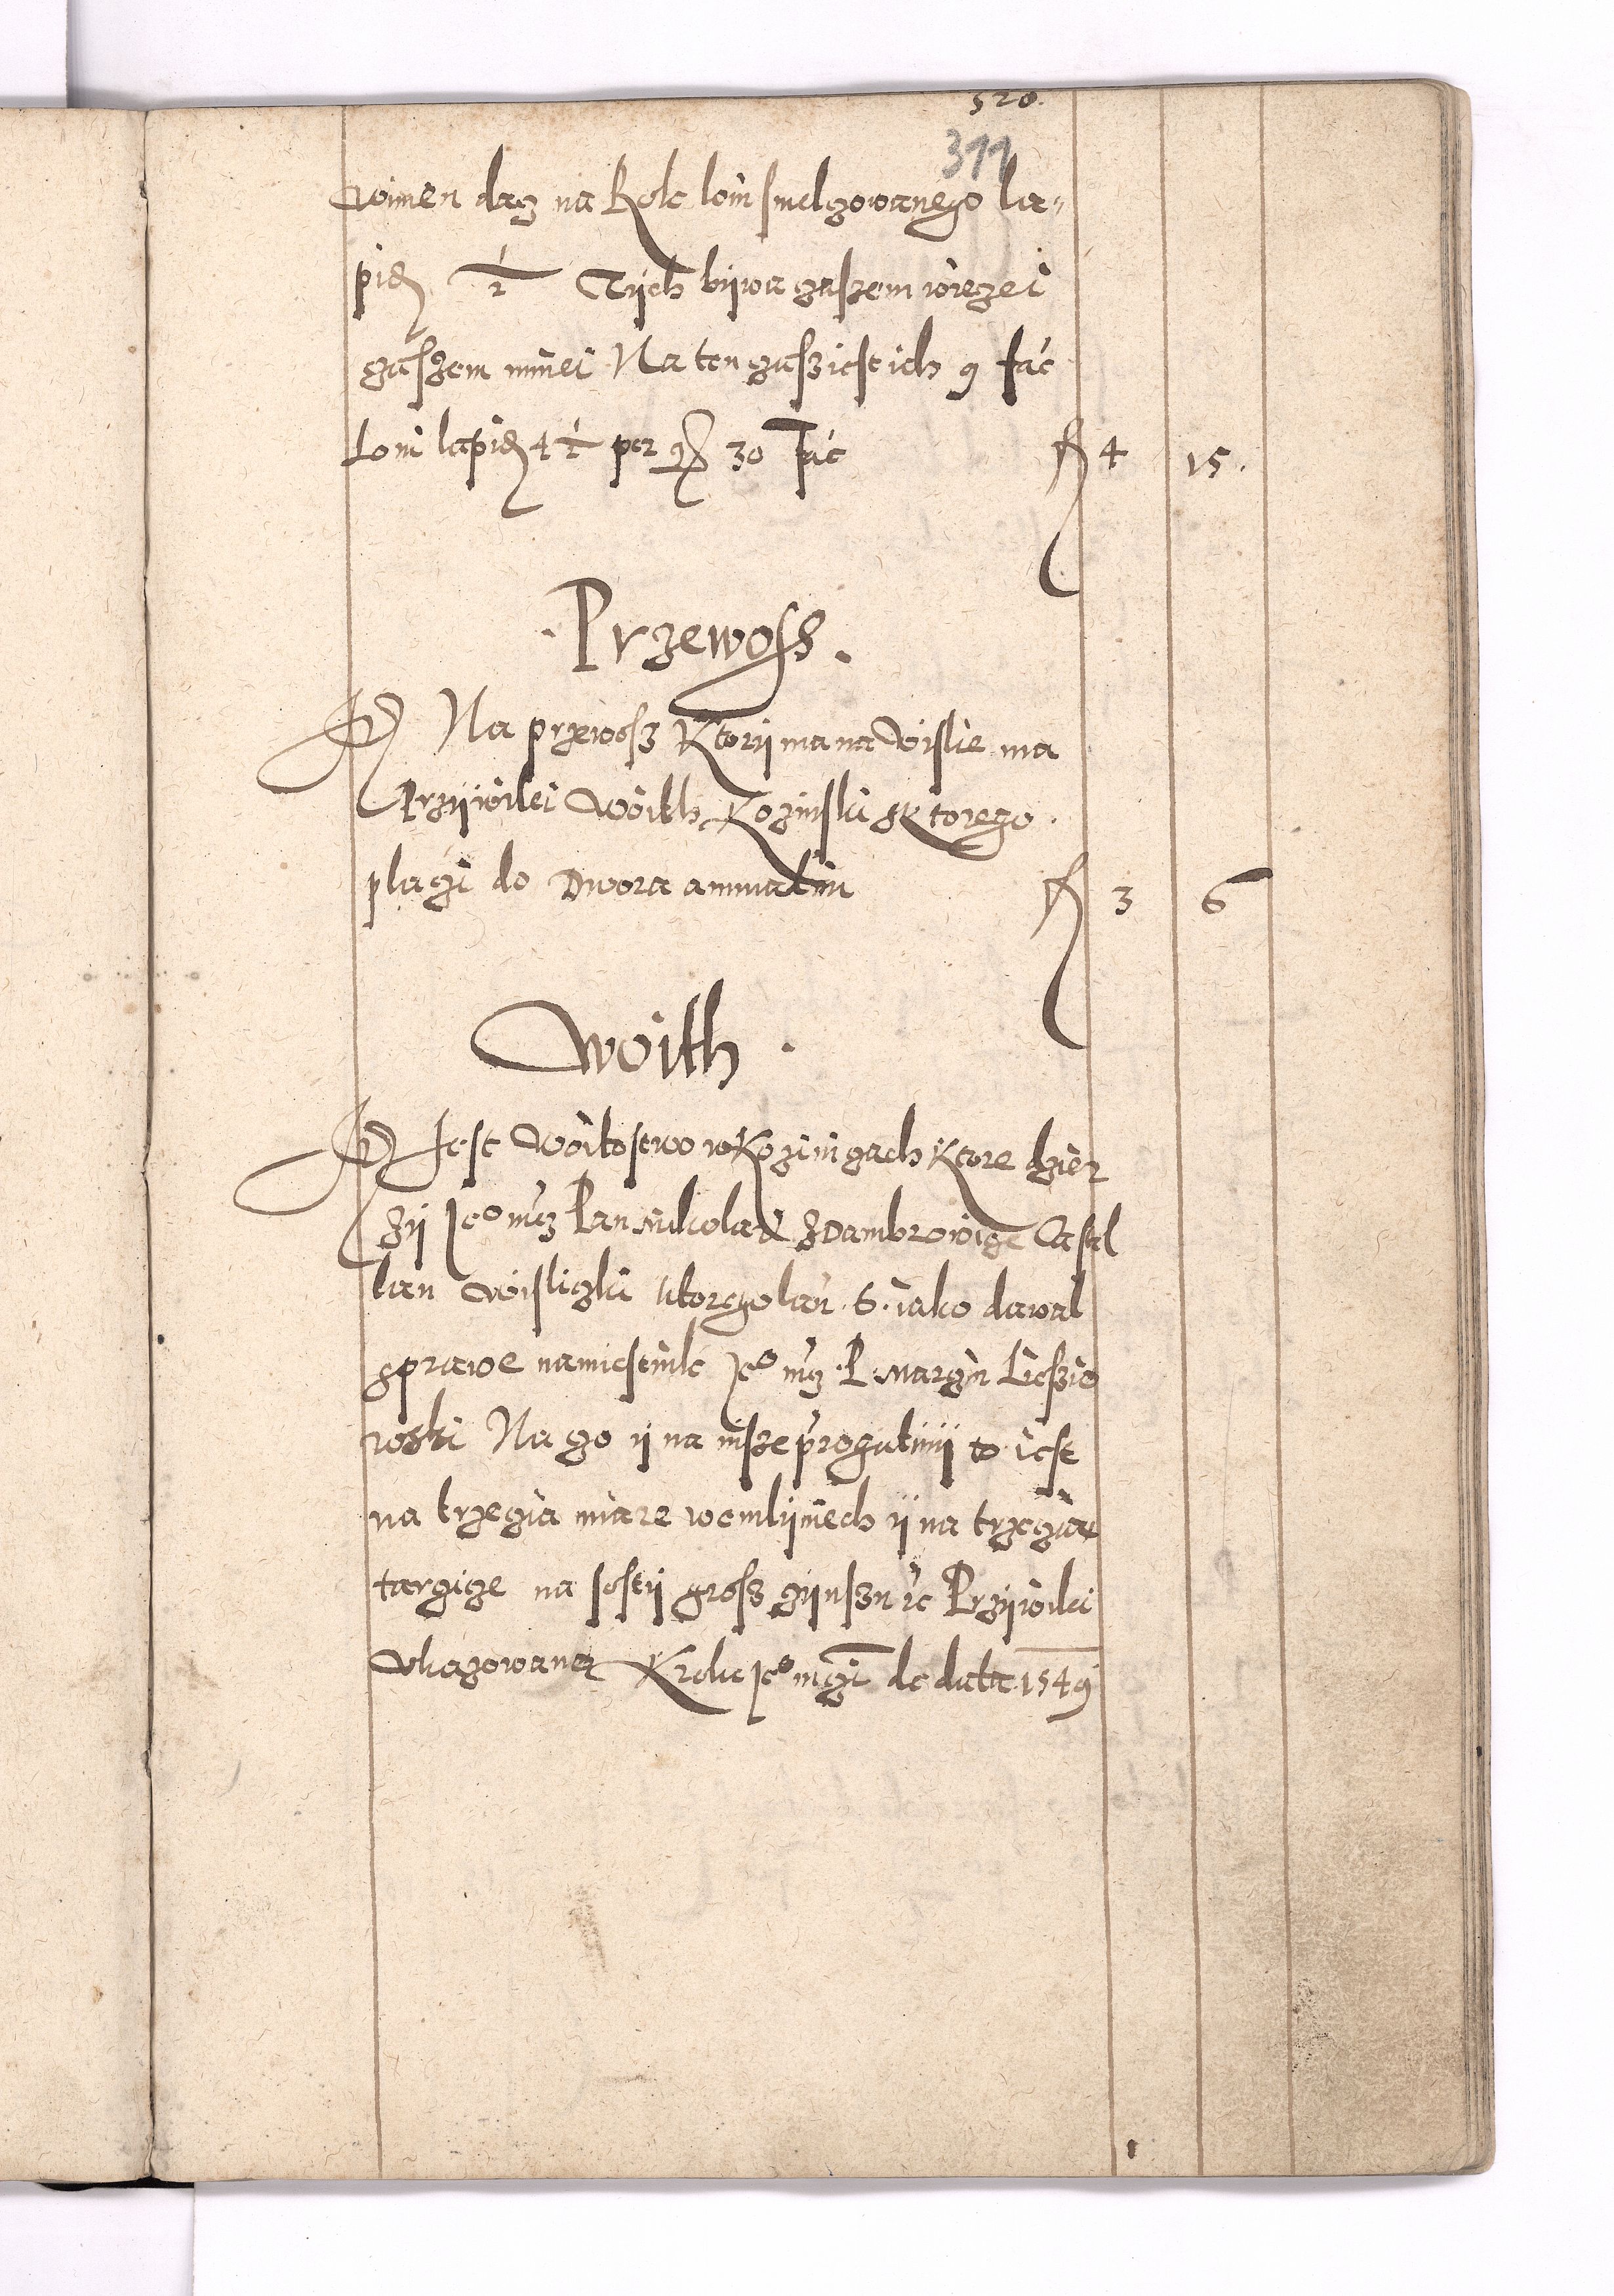 520.
311
winien dacz na Rok loiu smelczowanego la-
pid ½ Tÿch bÿwa czaszem wieczei
czaszem mniei Na ten czasz iest ich 9 fac
Loiu lapid 4½ per g 30 fac f 4 15.
Przewoss.
Na przewosz Ktorÿ ma na Wislie ma
Przÿwilei Woith Kozinski s ktorego
placzi do Dwora annuatim f 3 6
Woith.
Iest Woitostwo w Kozinczach Ktore dzier
zÿ Jeo mcz Pan Mikolai z Dambrowicze Castel
lan Wisliczki Utorego lan. 6. iako dawal
sprawe namiestnik Jeo mcz P. Marczin Lieszio
wski Ma go ÿ na insze prozatimÿ to iest
na trzeczia miare we mlÿniech ÿ na trzeczia
targicze na sostÿ grosz czÿnszu ic Przÿwilei
Ukazowano Krolia Jeo mczi de data 1549